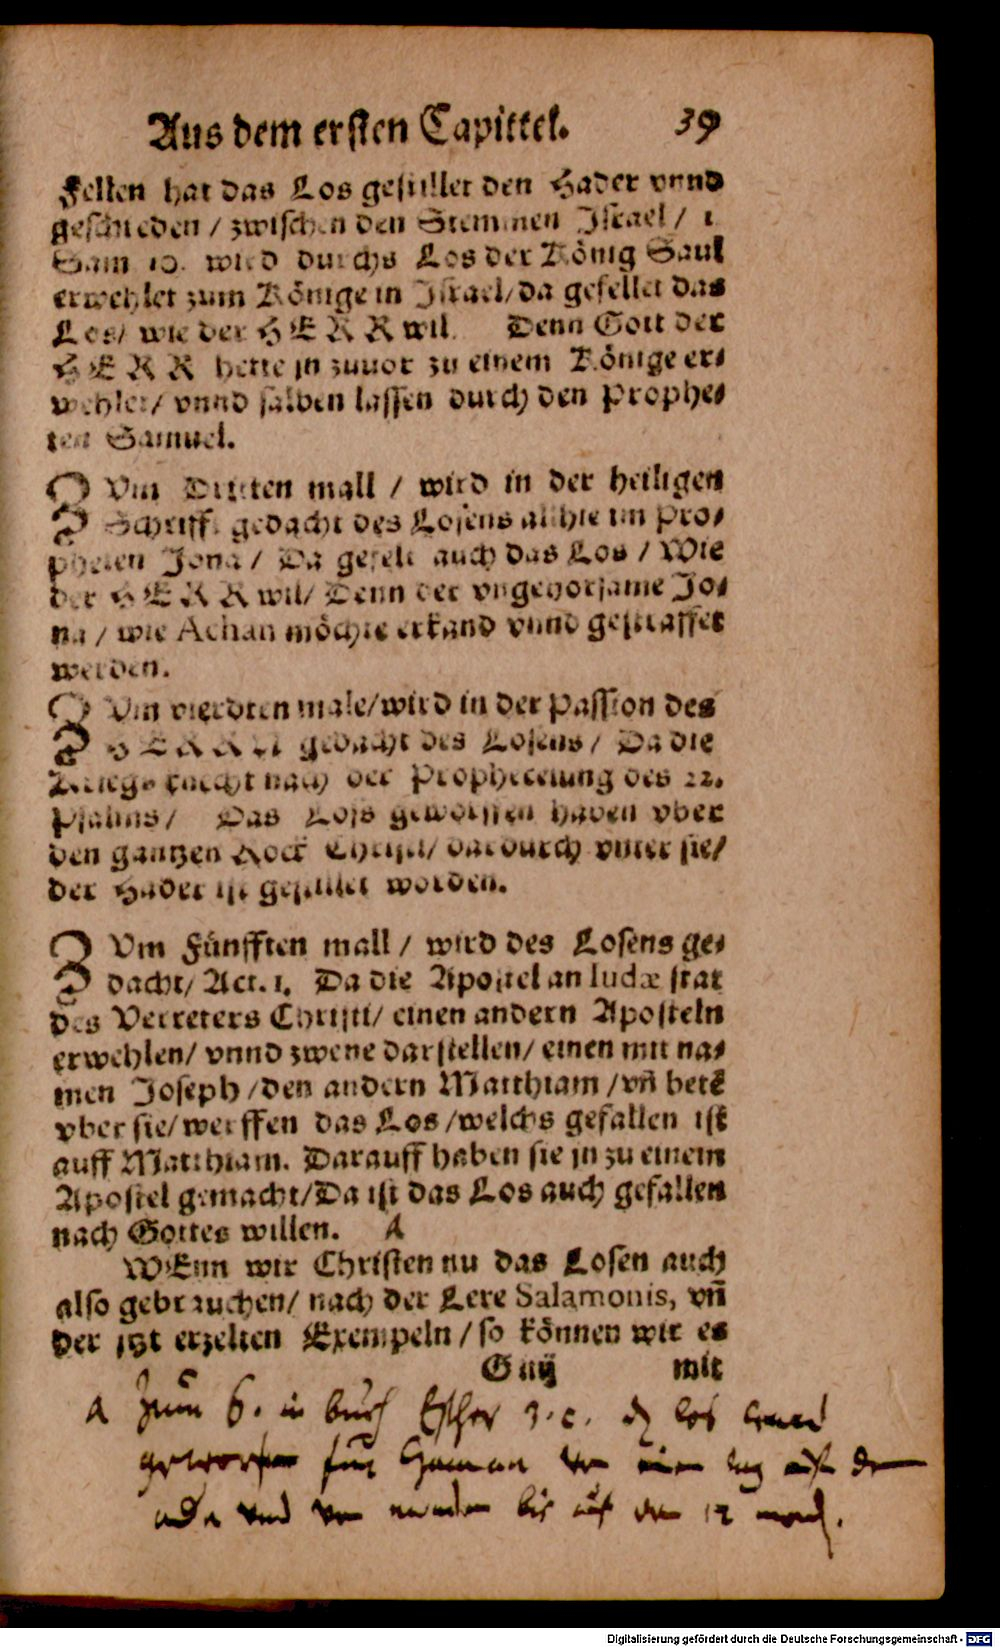 Aus dem ersten Capittel. 39
Fellen hat das Los gestillet den Hader vnnd
geschieden / zwischen den Stemmen Jsrael / 1
Sam 10. wird durchs Los der König Saul
erwehlet zum Könige in Jsrael/ da gefellet das
Los/ wie der HERR wil. Denn Gott der
HERR hette jn zuuor zu einem Könige er⸗
wehlet/ vnnd salben lassen durch den Prophe⸗
ten Samuel.
ZVm Dritten mall / wird in der heiligen
Schrifft gedacht des Losens alhie im Pro⸗
pheten Jona / Da gefelt auch das Los / Wie
der HERR wil/ Denn der vngehorsame Jo⸗
na / wie Achan möchte erkand vnnd gestraffet
werden.
ZVm vierdten male/ wird in der Passion des
HERRN gedacht des Losens / Da die
Kriegs knecht nach der Propheceiung des 22.
Psalms / Das Loss geworffen haben vber
den gantzen Rock Christi/ dardurch vnter sie/
der Hader ist gestillet worden.
ZVm Fünfften mall / wird des Losens ge⸗
dacht/ Act. 1. Da die Apostel an Iudæ stat
des Verreters Christi/ einen andern Aposteln
erwehlen/ vnnd zwene darstellen/ einen mit na⸗
men Joseph /den andern Matthiam /vñ betẽ
vber sie/ werffen das Los /welchs gefallen ist
auff Matthiam. Darauff haben sie jn zu einem
Apostel gemacht/Da ist das Los auch gefallen
nach Gottes willen. A
WEnn wir Christen nu das Losen auch
also gebrauchen/ nach der Lere Salamonis, vñ
der jtzt erzelten Exempeln / so können wir es
G iiij mit
A Zum 6. im buch Esther 3. c. los
geworfen fur Haman von einen tag auf den
andern vnd von monden bis auf den 12 mond.
Digitalisierung gefördert durch die Deutsche Forschungsgemeinschaft - DFG